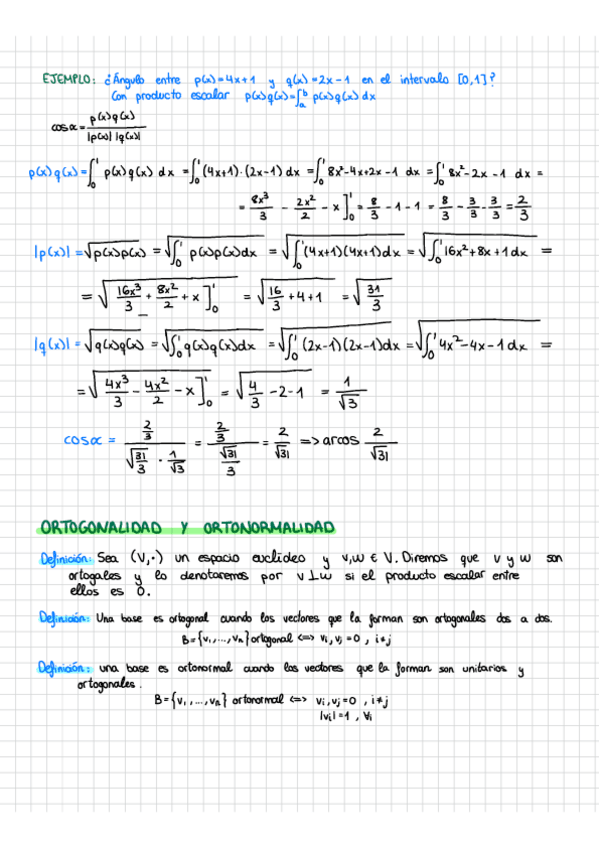 EJEMPLO: ¿Ángulo entre p(x)=4x+1 y q(x)=2x-1 en el intervalo [0,1]?
Con producto escalar p(x)q(x)=∫_a^b p(x)q(x)dx
cosα = p(x)q(x) / |p(x)| |q(x)|
p(x)q(x) = ∫_0^1 p(x)q(x) dx = ∫_0^1 (4x+1)·(2x-1) dx = ∫_0^1 8x²-4x+2x-1 dx = ∫_0^1 8x²-2x-1 dx =
= 8x³/3 - 2x²/2 - x ]_0^1 = 8/3 - 1 - 1 = 8/3 - 3/3 - 3/3 = 2/3
|p(x)| = √(p(x)p(x)) = √(∫_0^1 p(x)p(x)dx) = √(∫_0^1 (4x+1)(4x+1)dx) = √(∫_0^1 16x²+8x+1dx) =
= √(16x³/3 + 8x²/2 + x ]_0^1) = √(16/3 + 4 + 1) = √(31/3)
|q(x)| = √(q(x)q(x)) = √(∫_0^1 q(x)q(x)dx) = √(∫_0^1 (2x-1)(2x-1)dx) = √(∫_0^1 4x²-4x-1dx) =
= √(4x³/3 - 4x²/2 - x ]_0^1) = √(4/3 - 2 - 1) = 1/√3
cosα = (2/3) / (√(31/3) · 1/√3) = (2/3) / (√31/3) = 2/√31 => arcos 2/√31
ORTOGONALIDAD Y ORTONORMALIDAD
Definición: Sea (V,·) un espacio euclideo y v,w ∈ V. Diremos que v y w son
ortogales y lo denotaremos por v⊥w si el producto escalar entre
ellos es 0.
Definición: Una base es ortogonal cuando los vectores que la forman son ortogonales dos a dos.
B={v₁,...,vₙ} ortogonal <=> vᵢ,vⱼ=0 , i≠j
Definición: una base es ortonormal cuando los vectores que la forman son unitarios y
ortogonales.
B={v₁,...,vₙ} ortonormal <=> vᵢ,vⱼ=0 , i≠j
|vᵢ|=1 , ∀i